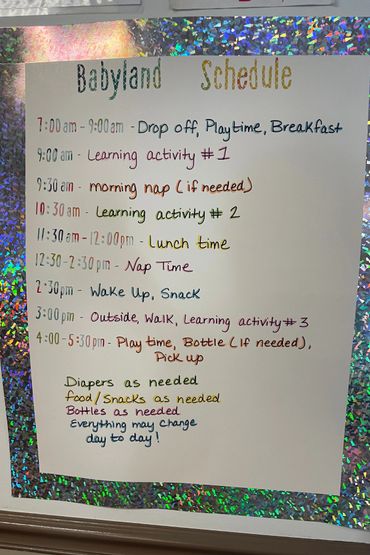 Babyland Schedule
7:00am - 9:00am - Drop off, Playtime, Breakfast
9:00am - Learning activity #1
9:30am - morning nap (if needed)
10:30am - Learning activity # 2
11:30am - 12:00pm - Lunch time
12:30-2:30pm - Nap Time
2:30pm - Wake Up, Snack
3:00pm - Outside, Walk, Learning activity #3
4:00-5:30pm - Play time, Bottle (if needed),
Pick up
Diapers as needed
Food/Snacks as needed
Bottles as needed
Everything may change
day to day!